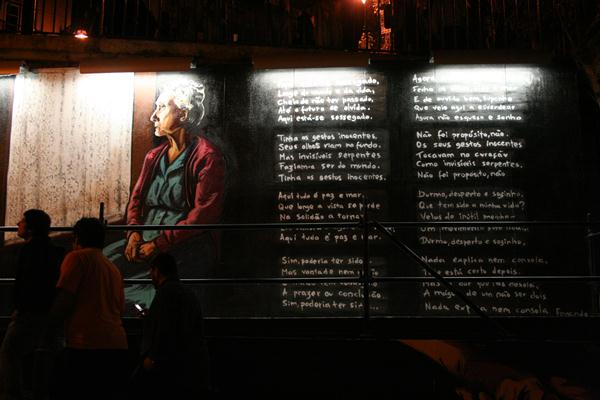 sossegado,
Longe do mundo e da vida,
Cheio de não ter passado,
Até o futuro se olvida.
Aqui está-se sossegado.
Tinha os gestos inocentes,
Seus olhos riam no fundo.
Mas invisíveis serpentes
Faziam-a ser do mundo.
Tinha os gestos inocentes.
Aqui tudo é paz e mar.
Que longe a vista se perde
Na solidão a tornar
Aqui tudo é paz e mar.
Sim, poderia ter sido
Mas vontade nem
A prazer ou conclusão
Sim, poderia ter sido
Agora
Tenho
E de ouvido bem,
Que vejo aqui a escurecer
Agora não esqueço e sonho
Não foi propósito, não.
Os seus gestos inocentes
Tocavam no coração
Como invisíveis serpentes.
Não foi propósito, não
Durmo, desperto e sozinho.
Que tem sido a minha vida?
Velas de inútil moinho
Um movimento sem
Durmo, desperto e sozinho.
Nada explica nem consola,
está certo depois.
Mas a dor que nos desola,
A mágoa de um não ser dois
Nada explica nem consola Fernando